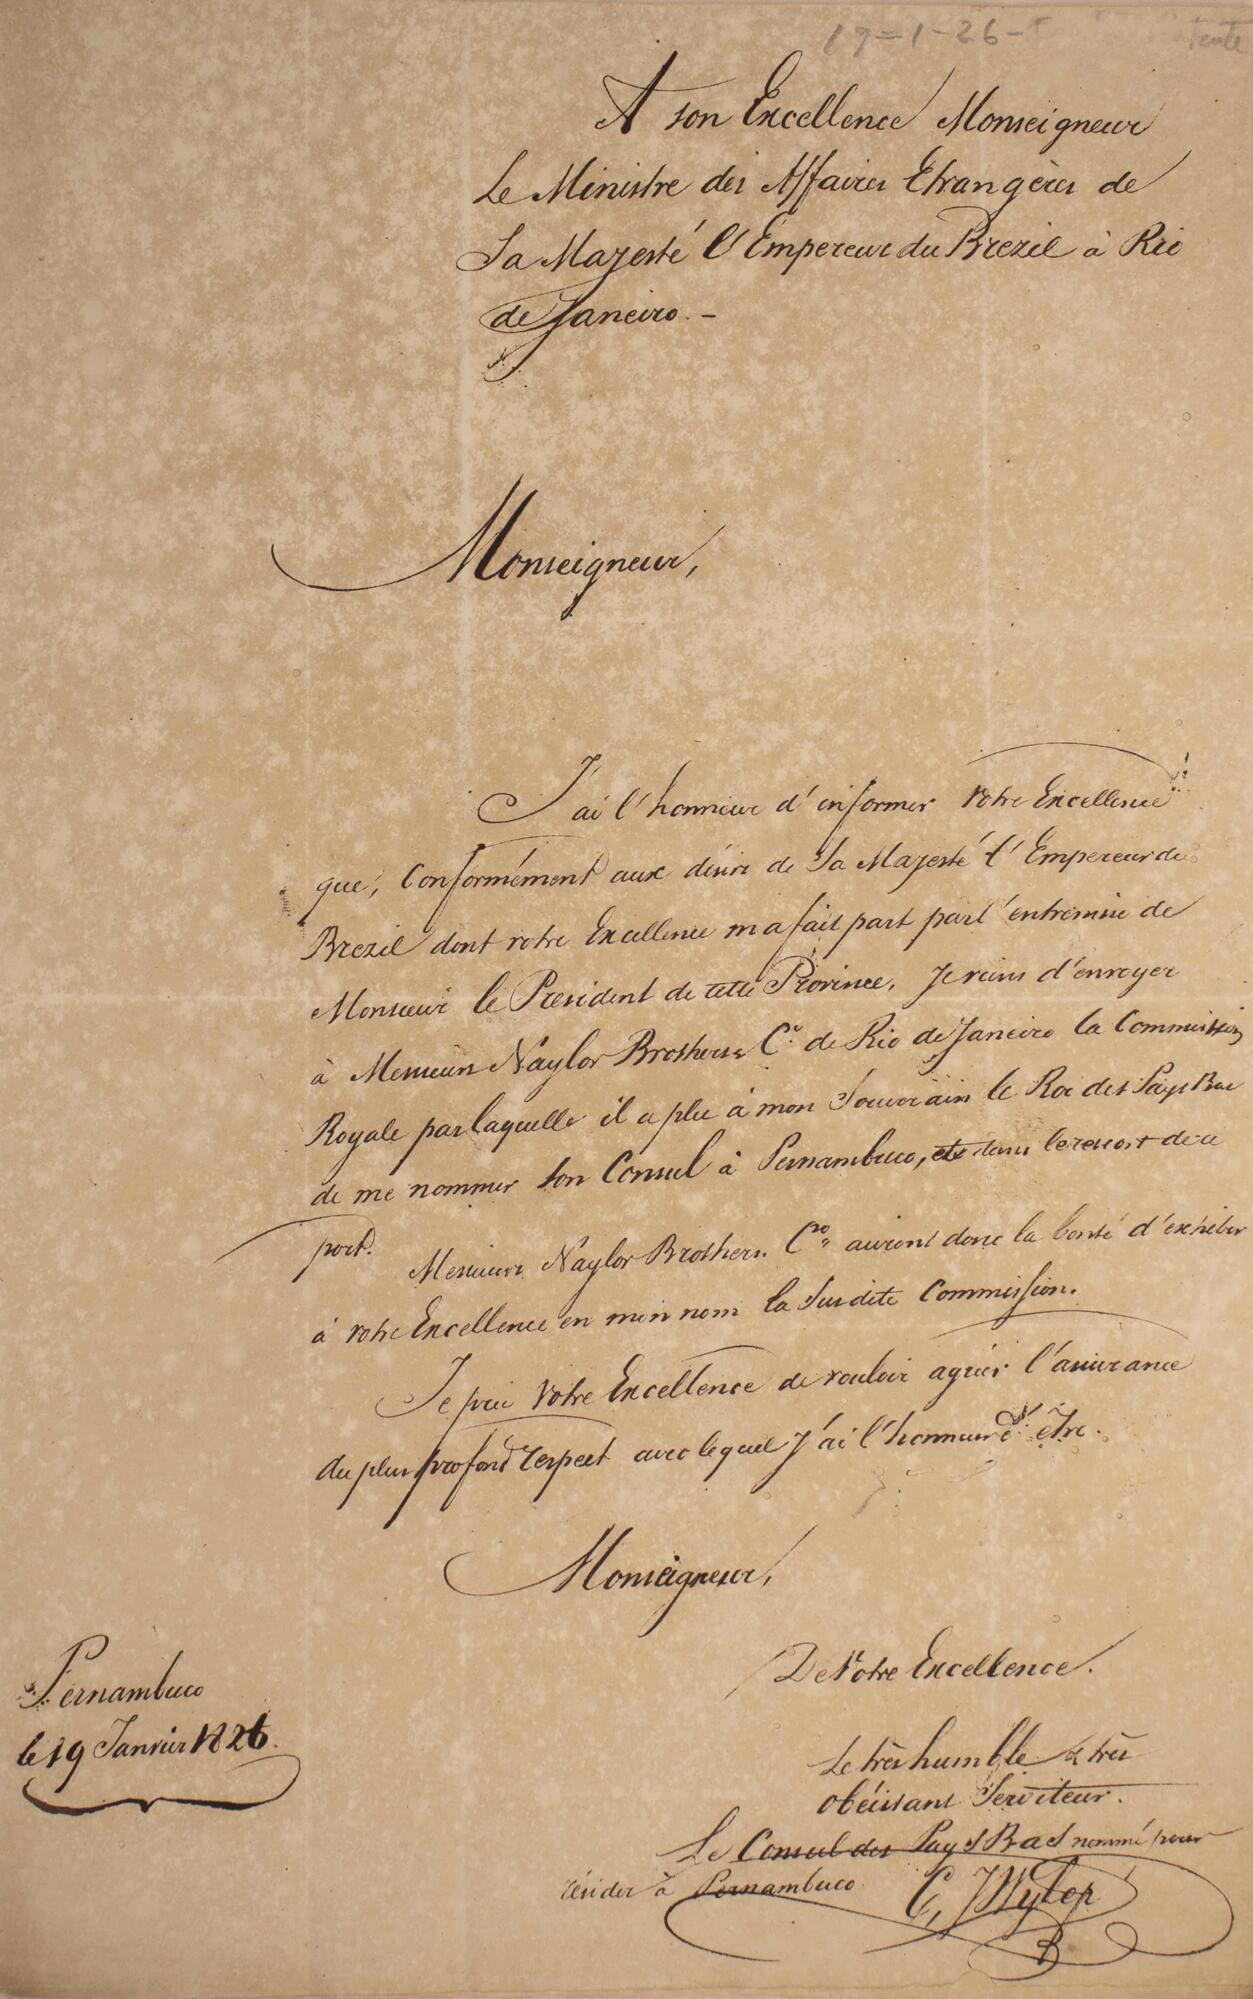 19=1-26-
A son Excellence Monseigneur
Le Ministre des Affaires Etrangères de
Sa Majesté l'Empereur du Brezil à Rio
de Janeiro. -
Monseigneur,
J'ai l'honneur d'informer Votre Excellence
que, Conformément aux désirs de Sa Majesté l'Empereur du
Brezil dont votre Excellence m'a fait part par l'entremise de
Monsieur le President de cette Province, Je viens d'envoyer
à Messieurs Naylor Brothers & Co. de Rio de Janeiro la Commission
Royale par laquelle il a plu à mon Souverain le Roi des Pays Bas
de me nommer son Consul à Pernambuco, dans le ressort de ce
port.
Messieurs Naylor Brothers. Co auront donc la bonté d'exhiber
à votre Excellence en mon nom la Susdite Commission.
Je prie Votre Excellence de vouloir agréer l'assurance
du plus profond respect avec lequel J'ai l'honneur d'être.
Monseigneur,
De Votre Excellence.
Pernambuco
le 19 Janvier 1826.
Le très humble & très
obéissant Serviteur.
Le Consul des Pays Bas nommé pour
résider à Pernambuco
C,